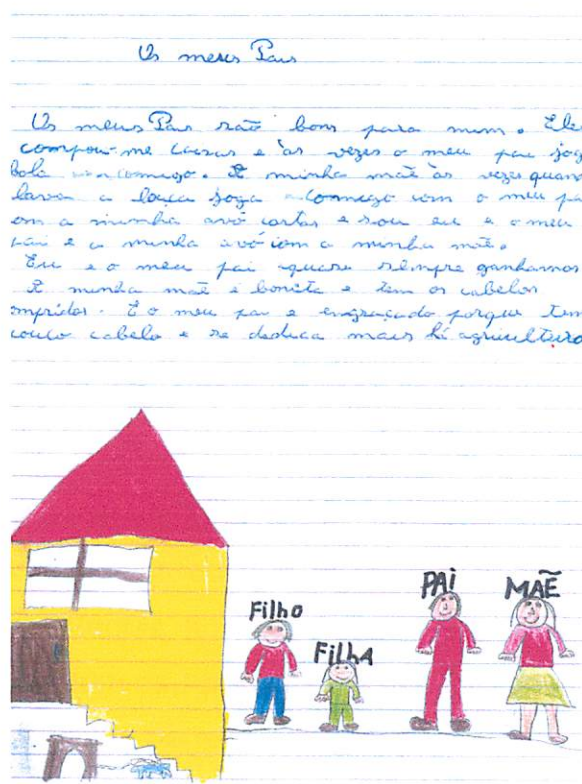 Os meus Pais
Os meus Pais são bons para mim. Eles
compou-me coisas e às vezes o meu pai jog
bola comigo. A minha mãe às vezes quan
lava a louça joga comigo com o meu pa
om a minha avó cartas e sou eu e o meu
pai e a minha avó com a minha mãe.
Eu e o meu pai quase sempre ganhamos
A minha mãe é bonita e tem os cabelos
mpridos. E o meu pai e engraçado porque tem
pouco cabelo e se dedica mais há agricultura
Filho
Filha
PAi
MAẼ